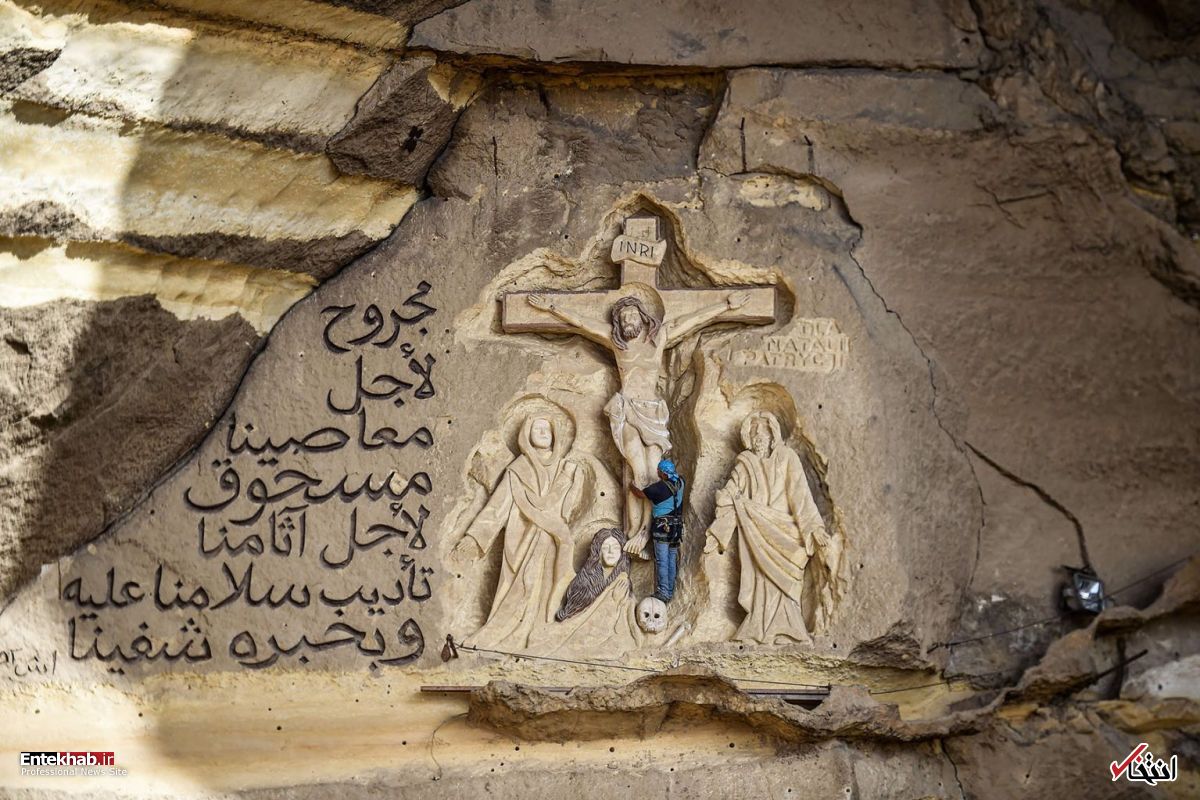 INRI
DLA
NATALII
I PATRYCJI
مجروح
لأجل
معاصينا
مسحوق
لأجل آثامنا
تأديب سلامنا عليه
وبخبره شفينا
Entekhab.ir
Professional News Site
انتخاب